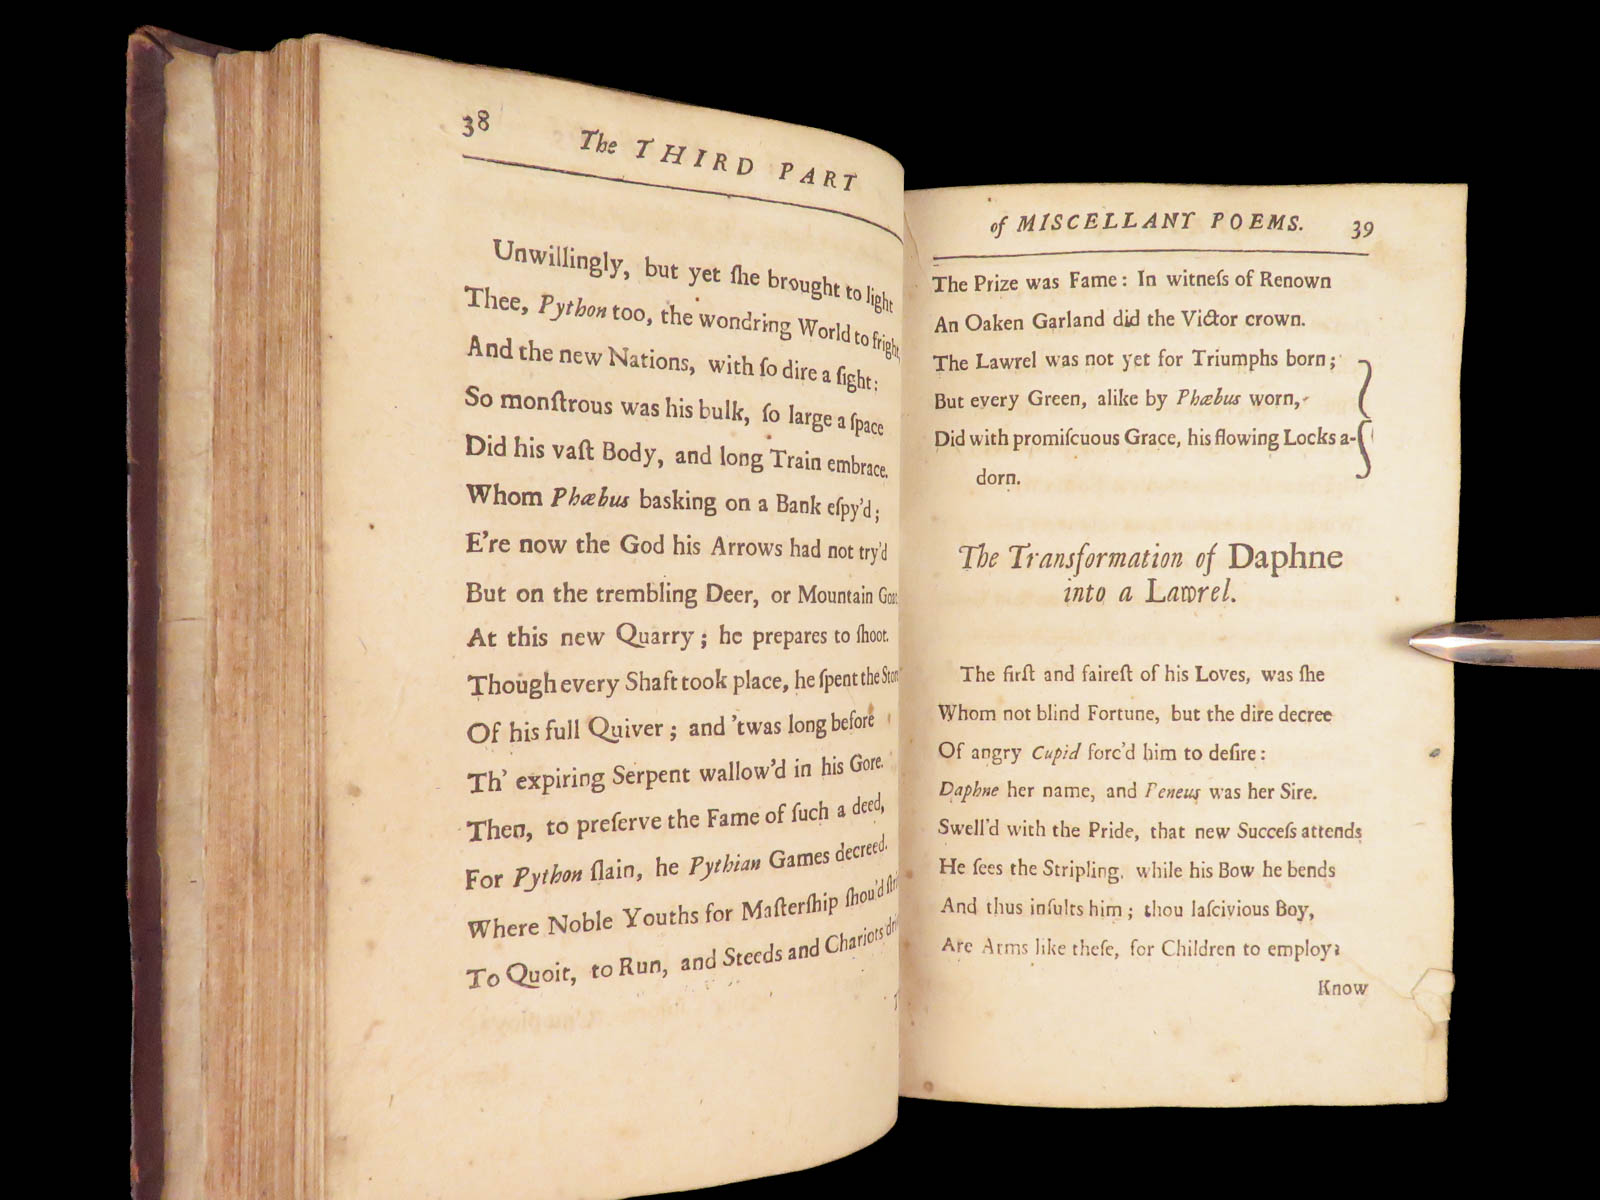 38
The THIRD PART
Unwillingly, but yet ſhe brought to light
Thee, Python too, the wondring World to fright,
And the new Nations, with ſo dire a ſight:
So monſtrous was his bulk, ſo large a ſpace
Did his vaſt Body, and long Train embrace.
Whom Phæbus basking on a Bank eſpy'd;
E're now the God his Arrows had not try'd
But on the trembling Deer, or Mountain Goat
At this new Quarry; he prepares to ſhoot.
Though every Shaft took place, he ſpent the
Of his full Quiver; and 'twas long before
Th' expiring Serpent wallow'd in his Gore.
Then, to preſerve the Fame of ſuch a deed,
For Python ſlain, he Pythian Games decreed.
Where Noble Youths for Maſterſhip ſhou'd
To Quoit, to Run, and Steeds and Chariots
of MISCELLANY POEMS. 39
The Prize was Fame: In witneſs of Renown
An Oaken Garland did the Victor crown.
The Lawrel was not yet for Triumphs born;
But every Green, alike by Phæbus worn,
Did with promiſcuous Grace, his flowing Locks a-
dorn.
The Tranſformation of Daphne
into a Lawrel.
The firſt and faireſt of his Loves, was ſhe
Whom not blind Fortune, but the dire decree
Of angry Cupid forc'd him to deſire:
Daphne her name, and Peneus was her Sire.
Swell'd with the Pride, that new Succeſs attends
He ſees the Stripling, while his Bow he bends
And thus inſults him; thou laſcivious Boy,
Are Arms like theſe, for Children to employ?
Know